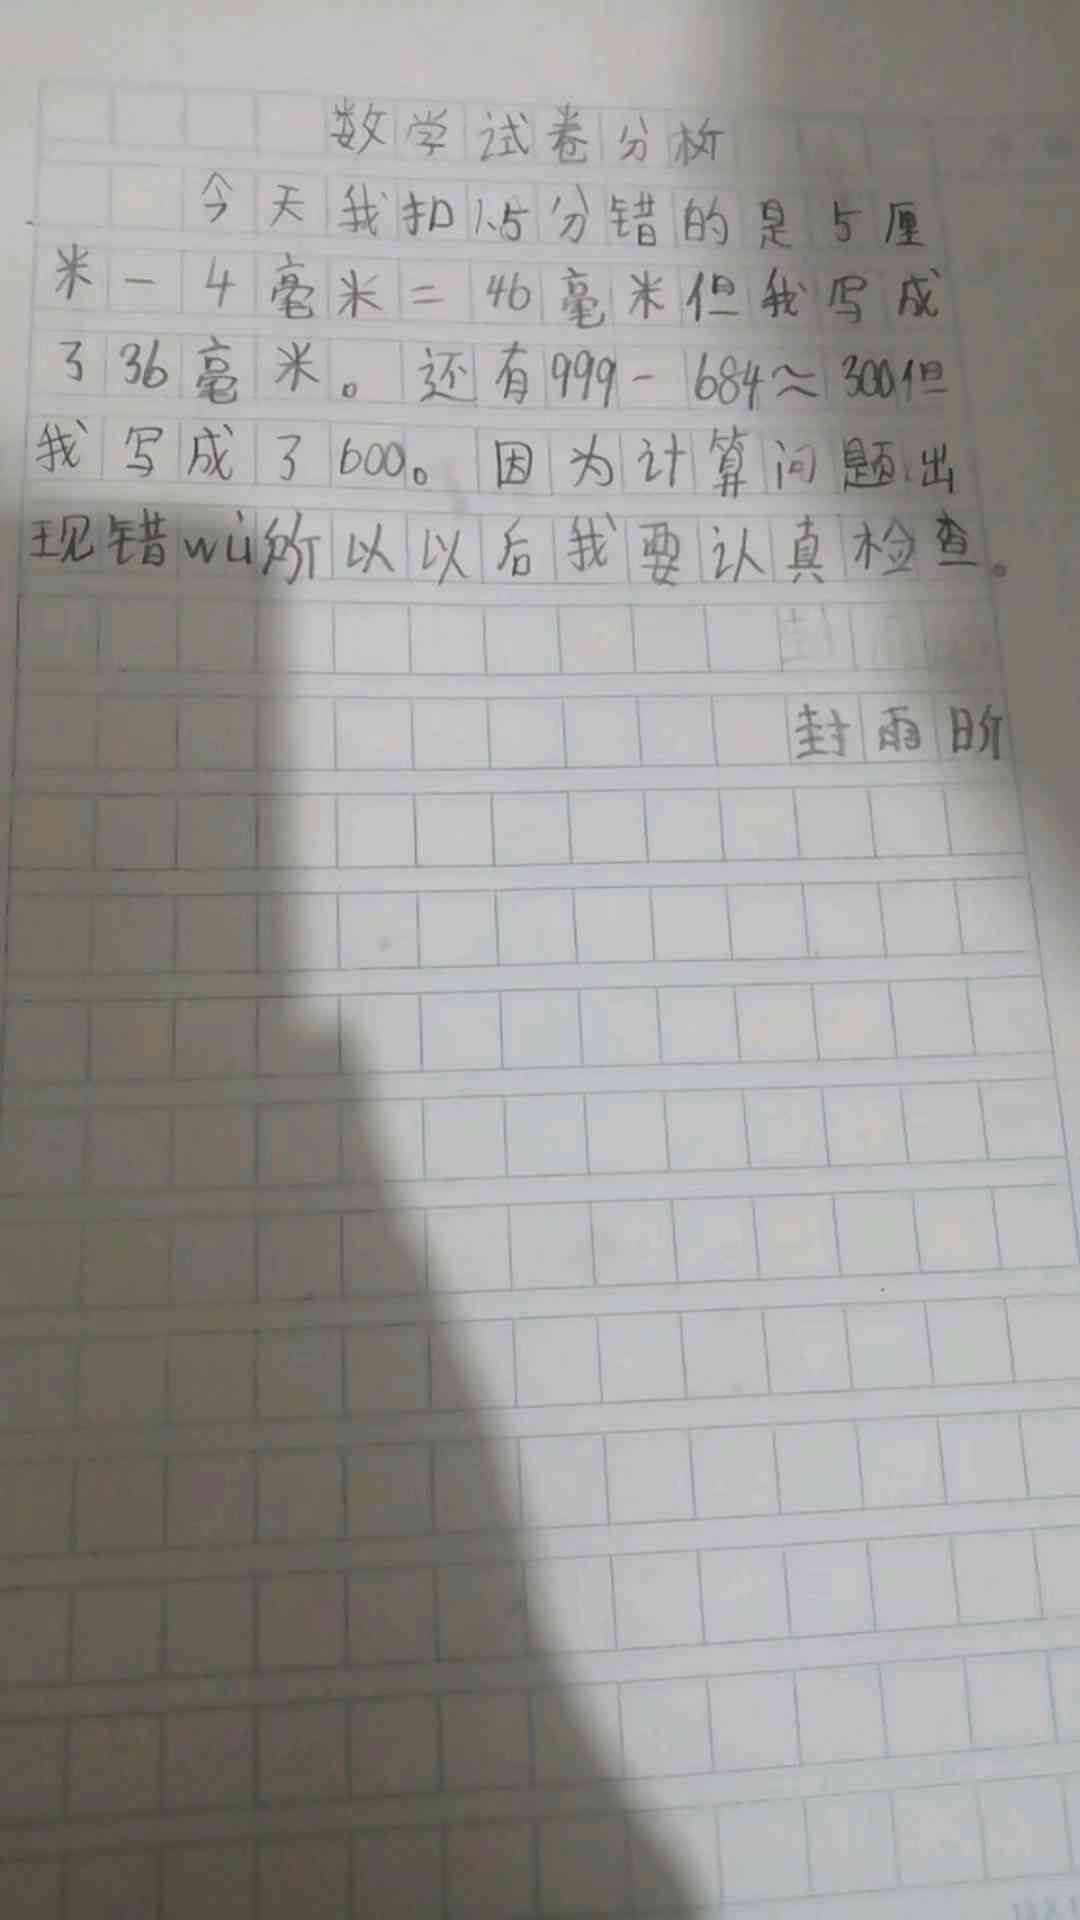 数学试卷分析
今天我扣1.5分错的是5厘
米-4毫米=46毫米但我写成
了36毫米。还有999-684≈300但
我写成了600。因为计算问题出
现错wù所以以后我要认真检查。
封雨昕